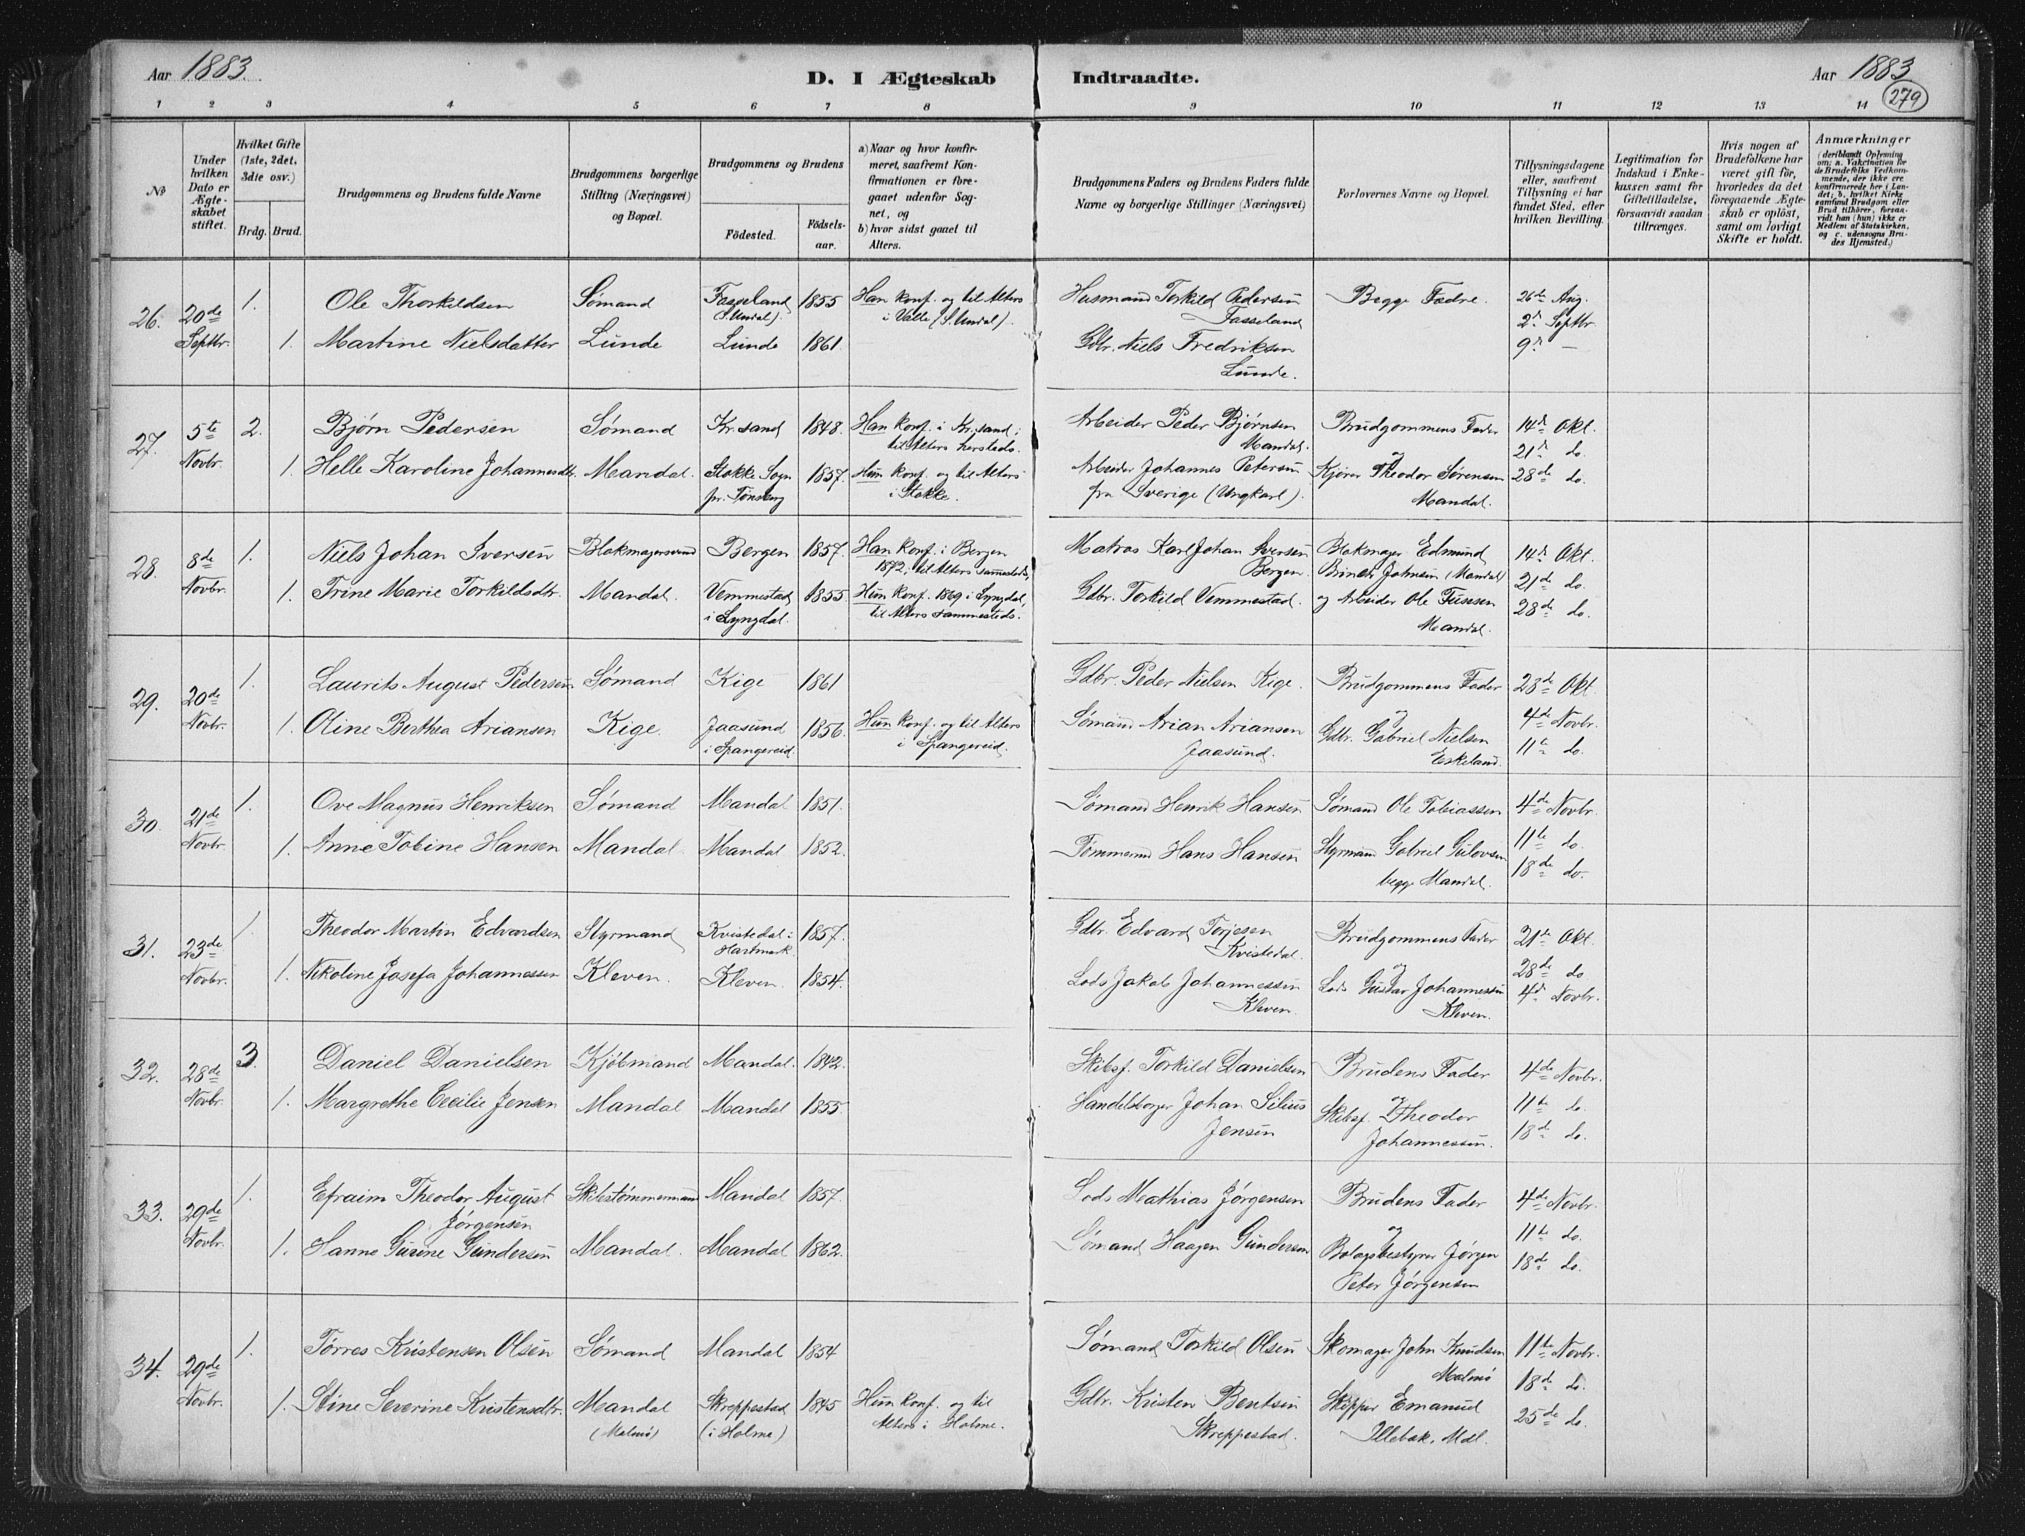 Aar 1883.
D. I Ægteskab
Indtraadte.
Aar 1883
279
1 2 3 4 5 6 7 8 9 10 11 12 13 14
No
Under hvilken Dato er Ægteskabet stiftet.
Hvilket Gifte (1ste, 2det, 3die osv.)
Brdg. Brud.
Brudgommens og Brudens fulde Navne
Brudgommens borgerlige Stilling (Næringsvei) og Bopæl.
Brudgommens og Brudens
Födested.
Födsels-aar.
a) Naar og hvor konfirmeret, saafremt Konfirmationen er foregaaet udenfor Sognet, og
b) hvor sidst gaaet til Alters.
Brudgommens Faders og Brudens Faders fulde Navne og borgerlige Stillinger (Næringsvei)
Forlovernes Navne og Bopæl.
Tillysningsdagene eller, saafremt Tillysning ei har fundet Sted, efter hvilken Bevilling.
Legitimation for Indskud i Enkekassen samt for Giftetilladelse, forsaavidt saadan tiltrænges.
Hvis nogen af Brudefolkene har været gift för, hvorledes da det foregaaende Ægteskab er oplöst, samt om lovligt Skifte er holdt.
Anmærkninger
(deriblandt Oplysning om: a. Vakcination for de Brudefolks Vedkommende, der ikke ere konfirmerede her i Landet; b. hvilket Kirkesamfund Brudgom eller Brud tilhörer, forsaavidt han (hun) ikke er Medlem af Statskirken, og c. udensogns Brudes Hjemsted.)
26. 20de Septbr. 1. Ole Thorkildsen Sømand Fasseland (S. Undal). 1855 Han konf. og til Alters i Valle (S. Undal). Husmand Torkild Pedersen Fasseland Begge Fædre. 26de Aug. 2d Septbr.
1. Martine Nielsdatter Lunde Lunde 1861. Gdbr. Niels Fredriksen Lunde. 9d —
27. 5te Novbr. 2. Bjørn Pedersen Sømand Kr.sand 1848. Han konf. i Kr.sand; til Alters hersteds. Arbeider Peder Bjørnsen Mandal. Brudgommens Fader og 14de Okt. 21de do.
1. Helle Karoline Johannesdtr. Mandal. Stokke Sogn pr. Tønsberg 1857. Hun konf. og til Alters i Stokke. Arbeider Johannes Petersen fra Sverige (Ungkarl). Kjører Theodor Sørensen Mandal. 28de do.
28. 8de Novbr. 1. Niels Johan Iversen Blokmagersvend Bergen 1857. Han konf. i Bergen 1872, til Alters sammesteds. Matros Karl Johan Iversen Bergen. Blokmager Edmund Johnsen (Mandal) 14de Okt. 21de do.
1. Trine Marie Torkildsdtr. Mandal. Vemmestad i Lyngdal. 1855 Hun konf. 1869 i Lyngdal, til Alters sammesteds. Gdbr. Torkild Vemmestad. og Arbeider Ole Mandal. 28de do.
29. 20de Novbr. 1. Laurits August Pedersen Sømand Kige 1861 Gdbr. Peder Nielsen Kige. Brudgommens Fader og 28de Okt. 4de Novbr.
1. Oline Berthea Ariansen Kige. Jaasund i Spangereid. 1856. Hun konf. og til Alters i Spangereid. Sømand Arian Ariansen Jaasund. Gdbr. Gabriel Nielsen Eskeland. 11te do.
30. 21de Novbr. 1. Ove Magnus Henriksen Sømand Mandal 1851. Sømand Henrik Hansen Sømand Ole Tobiassen 4de Novbr. 11te do.
1. Anne Tobine Hansen Mandal. Mandal 1852. Tømmermd Hans Hansen Styrmand Gabriel begge Mandal. 18de do.
31. 23de Novbr. 1. Theodor Martin Edvardsen Styrmand, Kvistedal i Hartmark 1857. Gdbr. Edvard Torjesen Kvistedal. Brudgommens Fader og 21de Okt. 28de do
1. Nikoline Josefa Johannessen Kleven. Kleven. 1854. Lods Jakob Johannessen Kleven. Lods Gustav Johannessen Kleven. 4de Novbr.
32. 28de Novbr. 3. Daniel Danielsen Kjøbmand Mandal. 1842. Skibsf. Torkild Danielsen Brudens Fader og 4de Novbr. 11te do.
1. Margrethe Cecilie Jensen Mandal Mandal 1855. Handelsborger Johan Silius Jensen Skibsf. Theodor Johannessen. 18de do.
33. 29de Novbr. 1. Efraim Theodor August Jørgensen Skibstømmermand Mandal 1857. Lods Mathias Jørgensen Brudens Fader og 4de Novbr. 11te do.
1. Hanne Gurine Gundersen Mandal. Mandal 1862. Sømand Haagen Gundersen Bolagsbestyrer Jørgen Peter Jørgensen 18de do.
34. 29de Novbr. 1. Tørres Kristensen Olsen Sømand Mandal 1854 Sømand Torkild Olsen Skomager John Knudsen Malmø 11te Novbr. 18de do.
1. Stine Severine Kristensdtr. Mandal (Malmø) Skreppestad (i Holme) 1845 Hun konf. og til Alters i Holme. Gdbr. Kristen Bentsen Skreppestad. Skipper Emanuel Illebak, Mdl. 25de do.